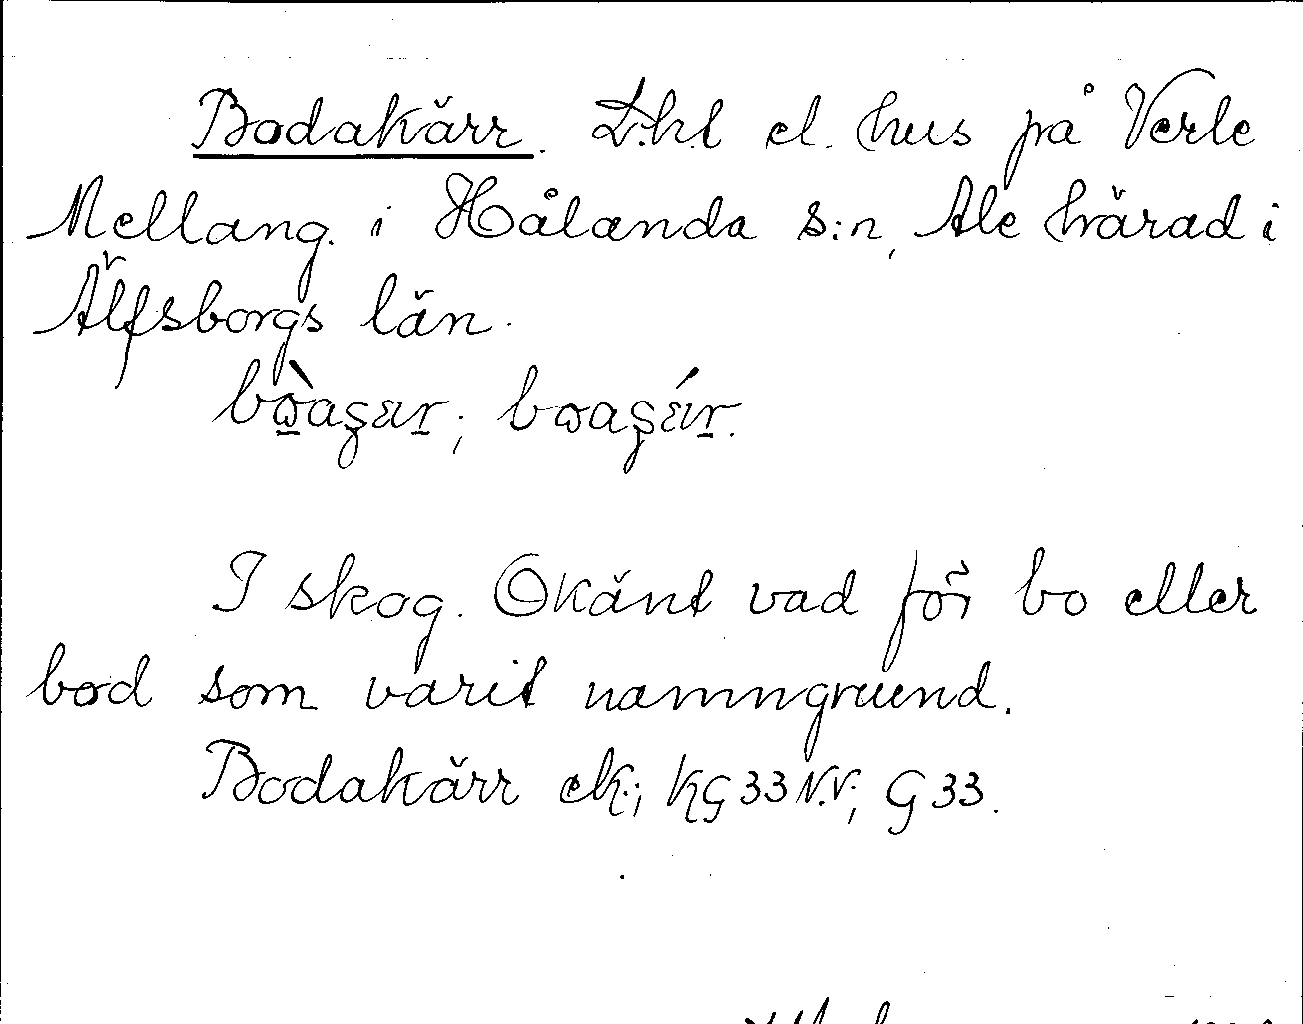 Bodakärr. L.h.t el. hus på Verle
Mellang. i Hålanda s:n, Ale härad i
Älfsborgs län.
I skog. Okänt vad för bo eller
bod som varit namngrund.
Bodakärr ek.; KG 33 N.V; G 33.